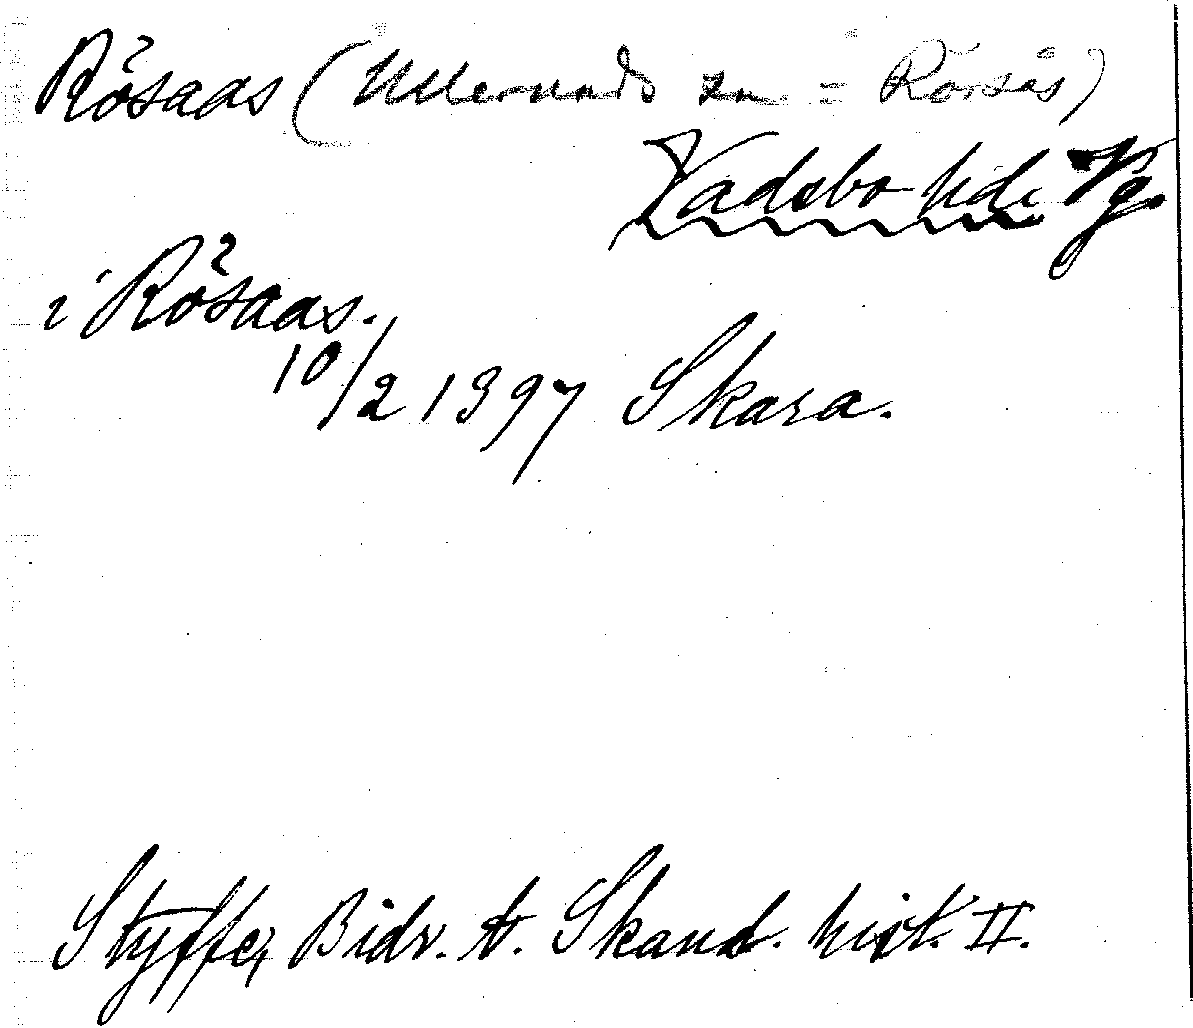 Rösaas (Ullervads sn = Rörsås)
Vadsbo hd. Vg.
i Rösaas.
10/2 1397 Skara.
Styffe, Bidr. t. Skand. hist. II.